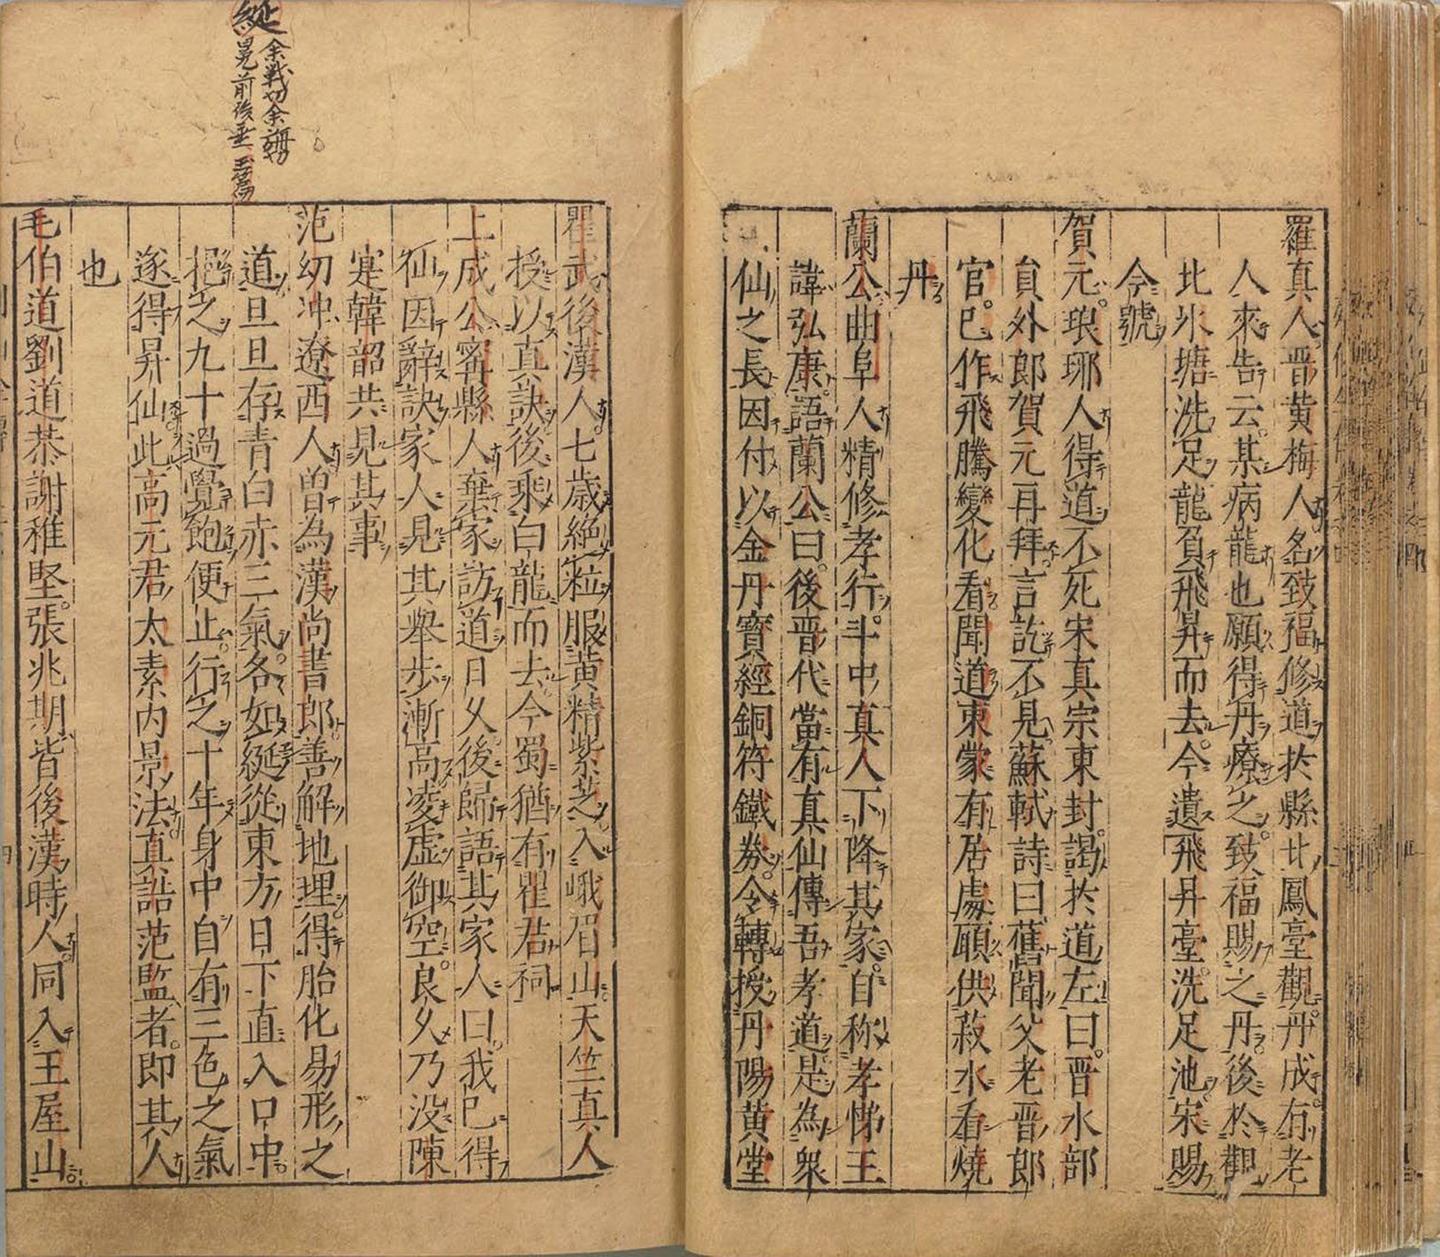 羅真人晋黄梅人名致福修道於縣北鳳臺觀丹成有老
人來告云某病龍也願得丹療之致福賜之丹後於觀
北氷塘洗足龍負飛昇而去今遺飛丹臺洗足池宋賜
今號
賀元琅琊人得道不死宋真宗東封謁於道左曰晋水部
負外郎賀元再拜言訖不見蘇軾詩曰舊聞父老晋郎
官已作飛騰變化看聞道東蒙有居處願供薪水看燒
丹
蘭公曲阜人精修孝行斗中真人下降其家自称孝悌王
諱弘康語蘭公曰後晋代當有真仙傳吾孝道是為衆
仙之長因付以金丹寳經銅符鐵券令轉授丹陽黄堂
瞿武後漢人七歳絶粒服黄精紫芝入峨眉山天竺真人
授以真訣後乘白龍而去今蜀猶有瞿君祠
上成公寗縣人棄家訪道日久後歸語其家人曰我已得
仙因辭訣家人見其舉歩漸高凌虚御空良久乃没陳
寔韓韶共見其事
范幼冲遼西人曽為漢尚書郎善解地理得胎化易形之
道旦旦存青白赤三氣各如綖從東方日下直入口中
挹之九十過覺飽便止行之十年身中自有三色之氣
遂得昇仙此高元君太素内景法真誥范監者即其人
也
毛伯道劉道恭謝稚堅張兆期皆後漢時人同入王屋山
綖
余戰切余
冕前後垂